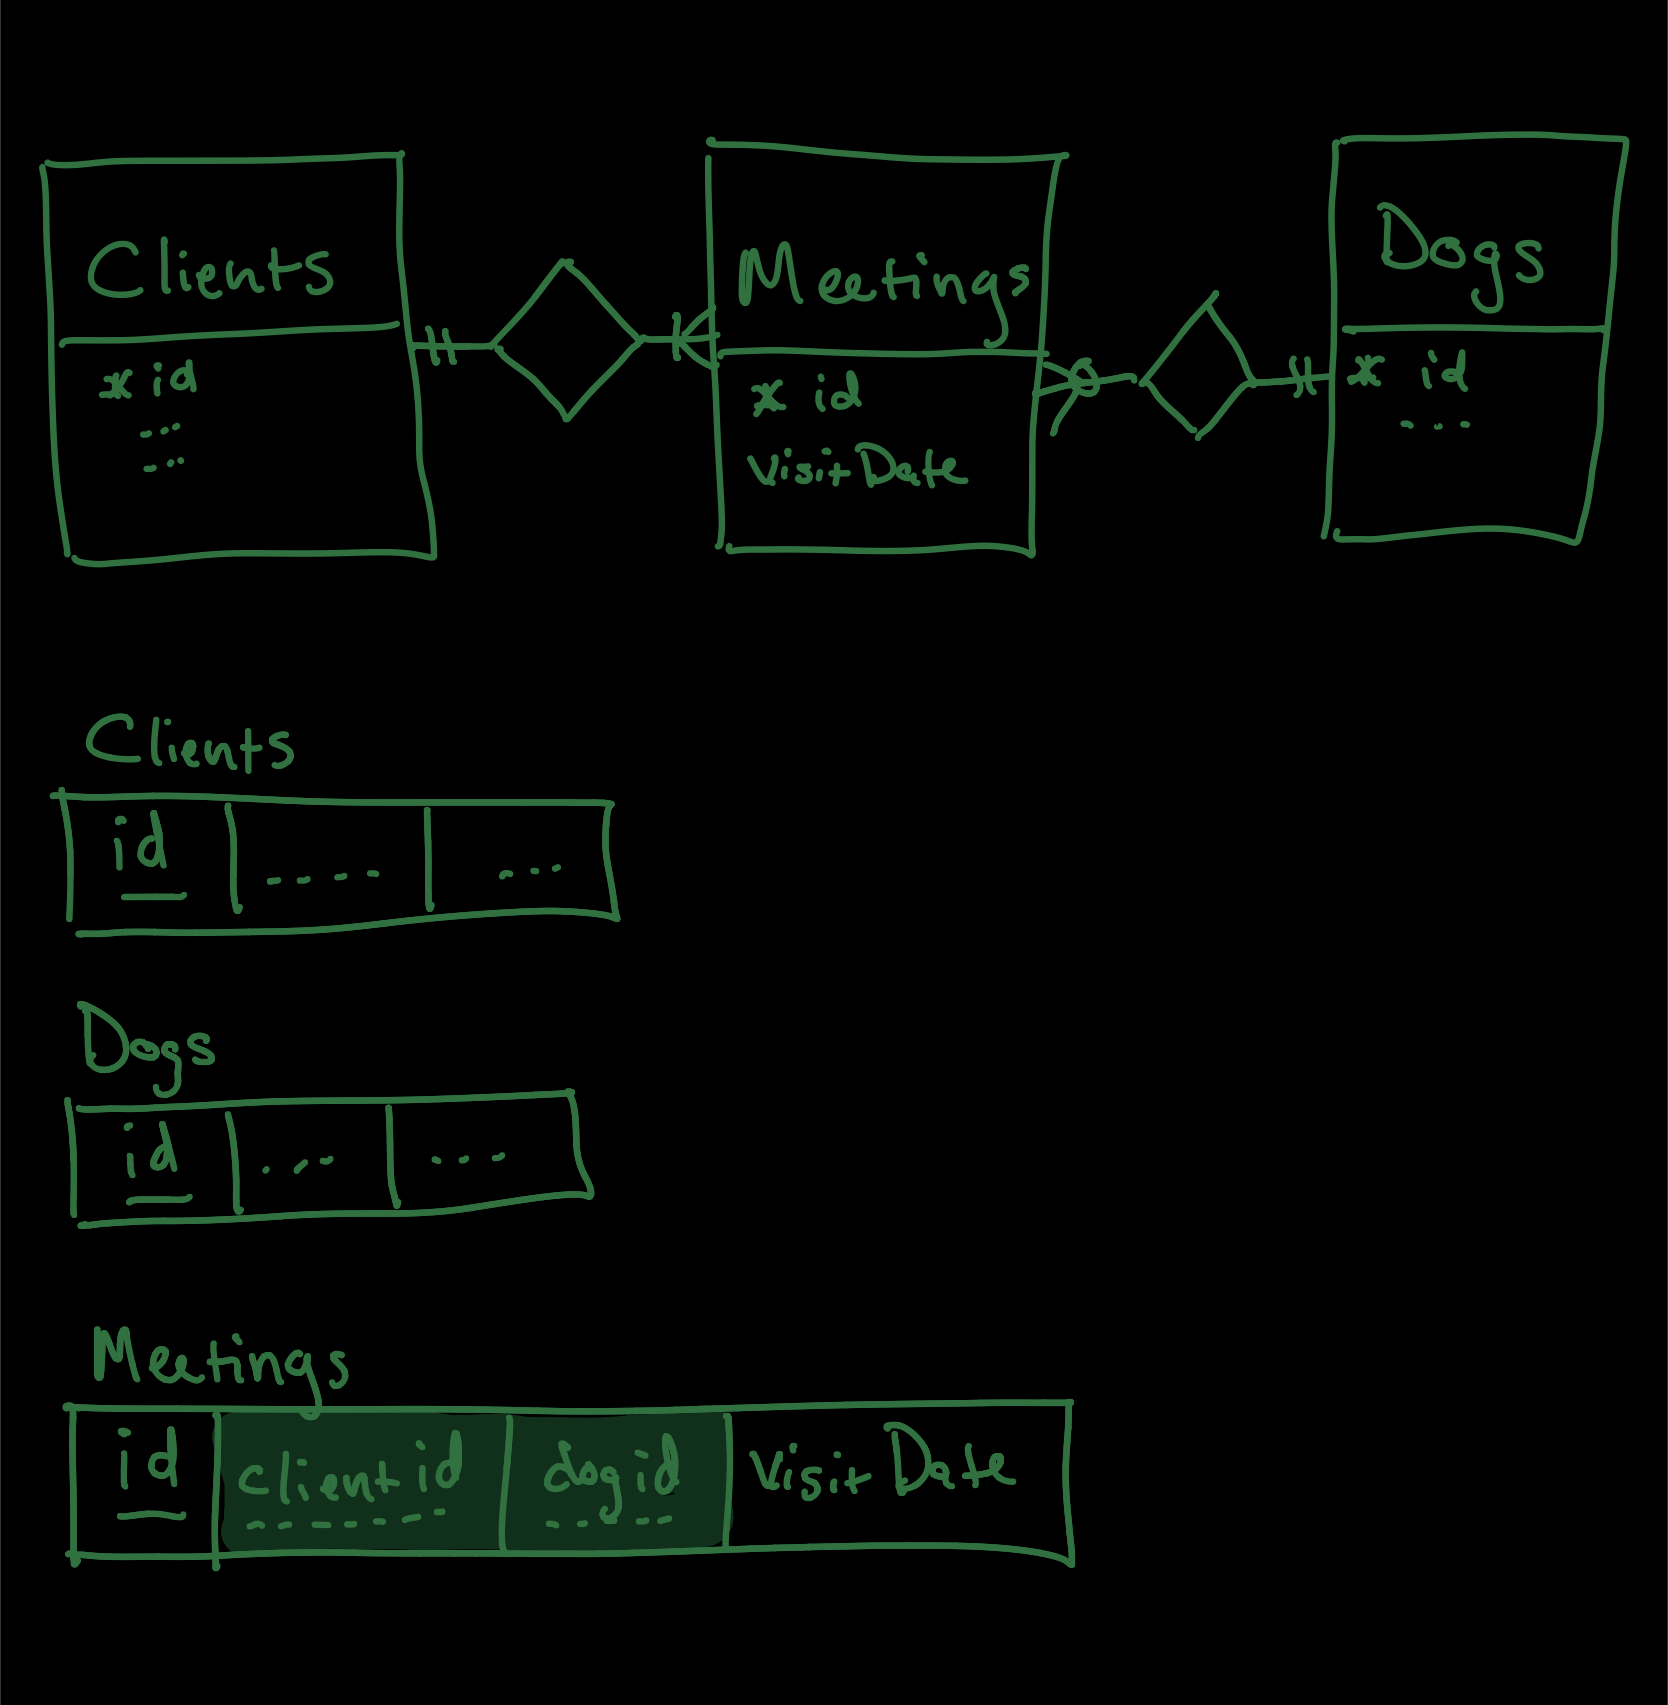 Clients
* id
Meetings
* id
visitDate
Dogs
* id
Clients
id
Dogs
id
Meetings
id clientid dogid visitDate